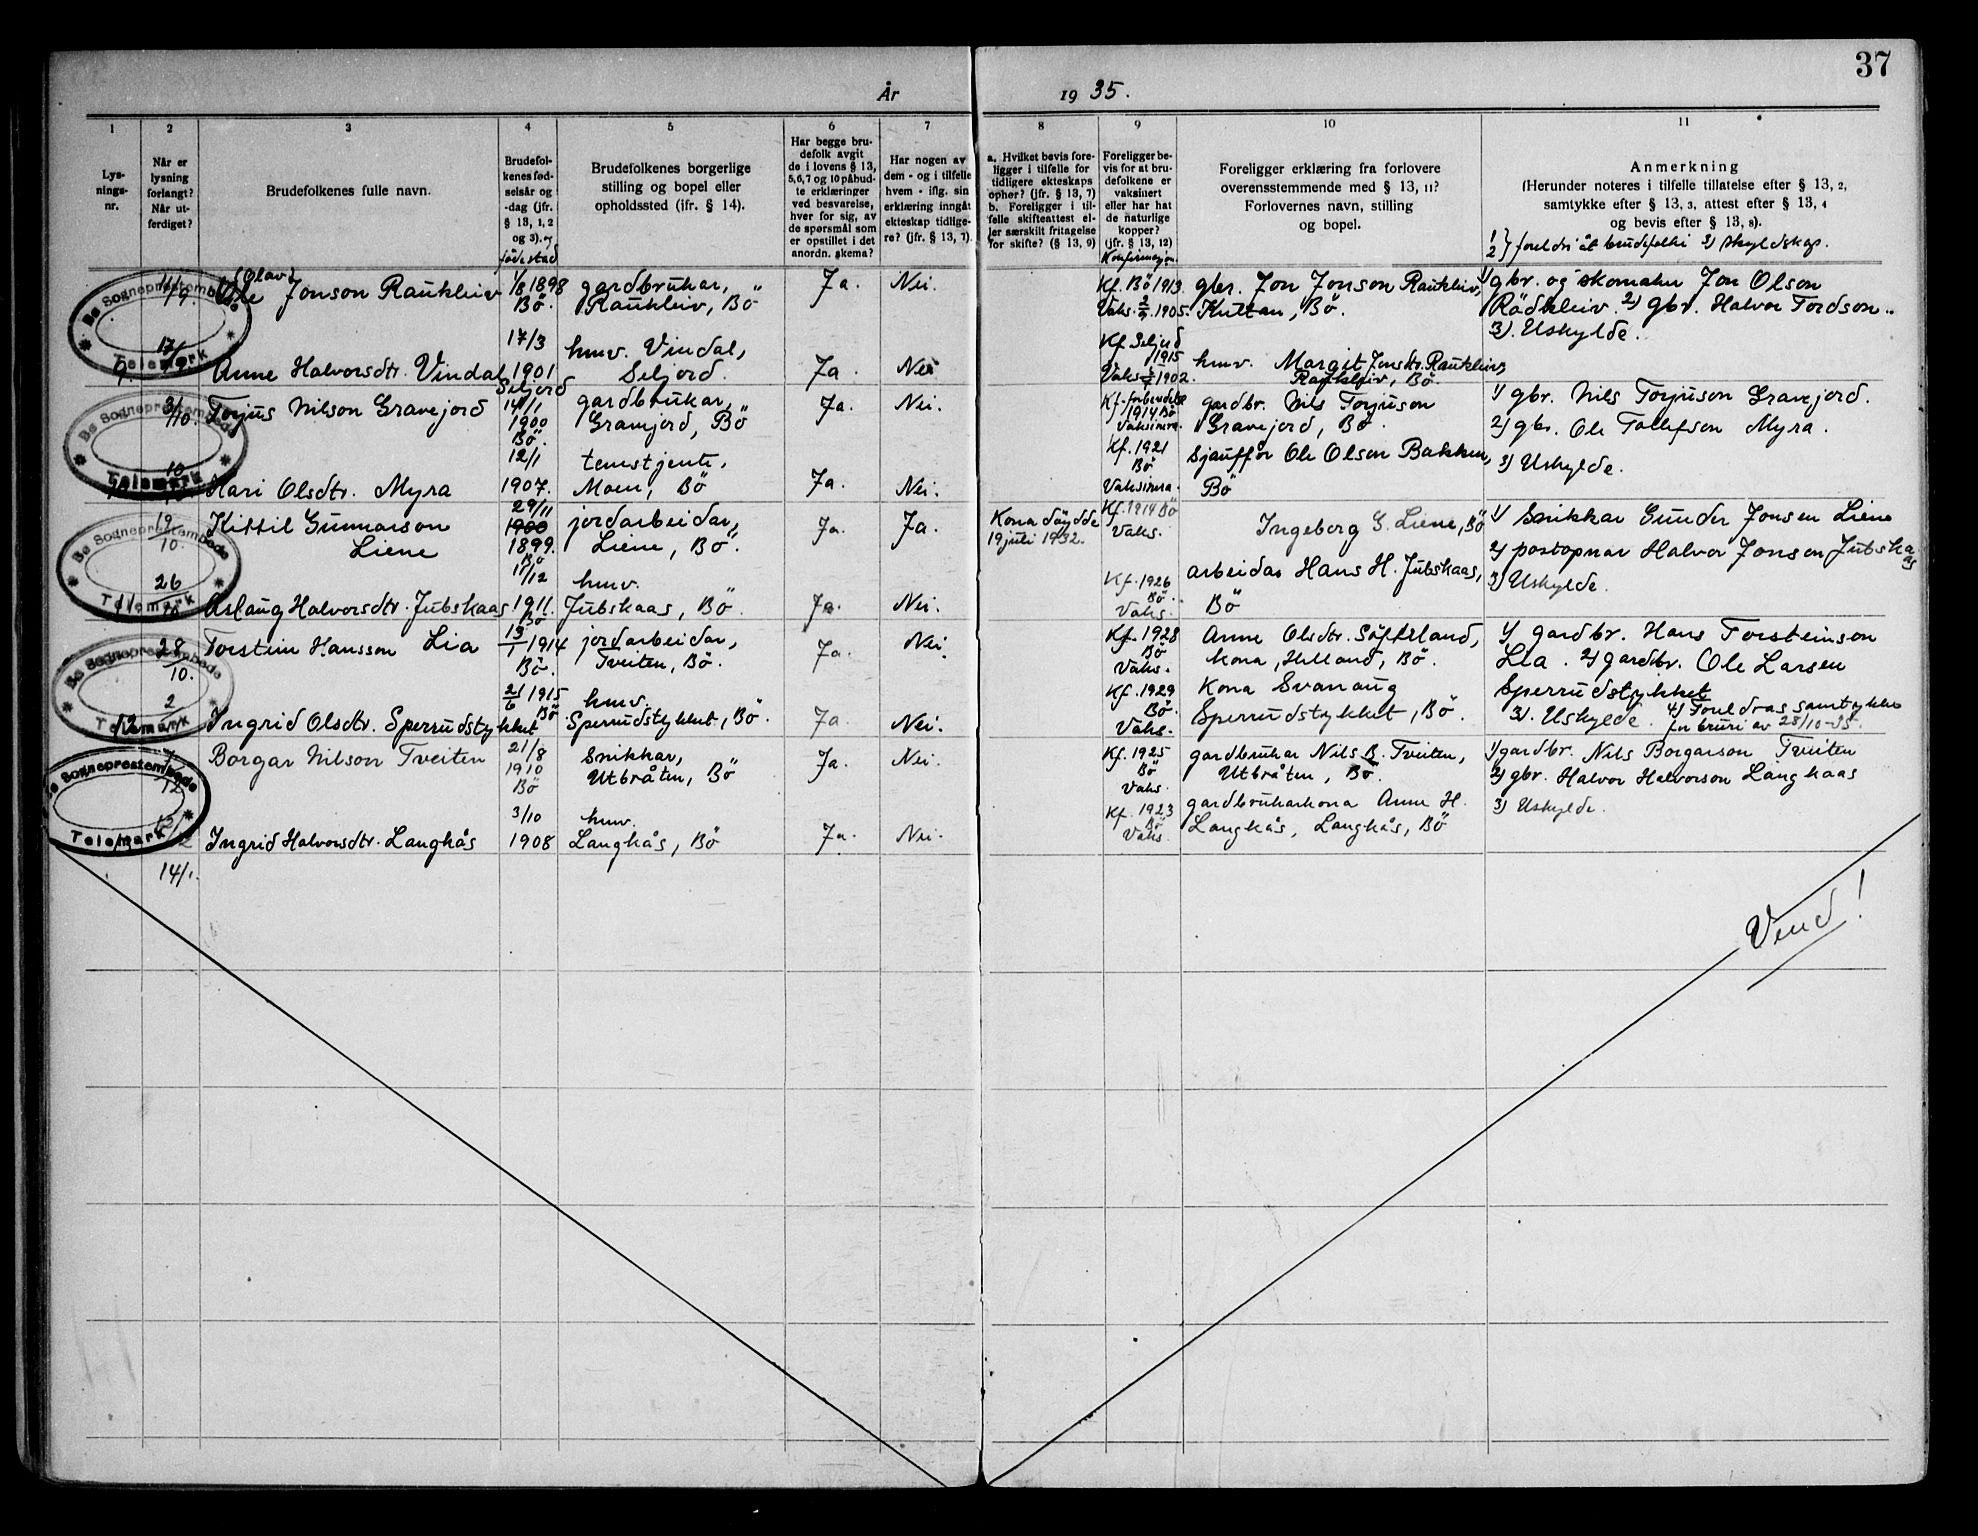 37
År 1935.
1 2 3 4 5 6 7 8 9 10 11
Lys-
nings-
nr.
Når er
lysning
forlangt?
Når ut-
ferdiget?
Brudefolkenes fulle navn.
Brudefol-
kenes fød-
selsår og
-dag (jfr.
§ 13, 1, 2
og 3). og
fødestad
Brudefolkenes borgerlige
stilling og bopel eller
opholdssted (jfr. § 14).
Har begge bru-
defolk avgit
de i lovens § 13,
5,6,7 og 10 påbud-
te erklæringer
ved besvarelse,
hver for sig, av
de spørsmål som
er opstillet i det
anordn. skema?
Har nogen av
dem - og i tilfelle
hvem - iflg. sin
erklæring inngått
ekteskap tidlige-
re? (jfr. § 13, 7).
a. Hvilket bevis fore-
ligger i tilfelle for
tidligere ekteskaps
ophør? (jfr. § 13, 7)
b. Foreligger i til-
felle skifteattest el-
ler særskilt fritagelse
for skifte? (§ 13, 9)
Foreligger be-
vis for at bru-
defolkene er
vaksinert
eller har hat
de naturlige
kopper?
(jfr. § 13, 12)
Konfirmasjon
Foreligger erklæring fra forlovere
overensstemmende med § 13, 11?
Forlovernes navn, stilling
og bopel.
Anmerkning
(Herunder noteres i tilfelle tillatelse efter § 13, 2,
samtykke efter § 13, 3, attest efter § 13, 4
og bevis efter § 13, 8).
1/2} foreldri åt brudefolki 3) skyldskap.
Bø Sogneprestembede
Telemark
11/9.
17/9.
(Olav)
Ole Jonson Raukleiv
1/8 1898
Bö.
gardbrukar,
Raukleiv, Bö
Ja.
Nei.
Kf. Bö 1913.
Vaks. 2/7. 1905.
gbr. Jon Jonson Raukleiv,
Kultan, Bö.
1) gbr. og skomakar Jon Olson
Rödkleiv. 2) gbr. Halvor Tordson..
3). Uskylde.
Anne Halvorsdtr. Vindal
17/3
1901
Seljord
hmv. Vindal,
Seljord.
Ja.
Nei
Kf. Seljord
1915
Vaks 1902.
hmv. Margit Jonsdtr. Raukleiv,
Raukleiv, Bö.
Bø Sogneprestembede
Telemark
3/10.
10
Torjus Nilson Gravejord
14/1
1900
Bö.
gardbrukar,
Gravejord, Bö
Ja.
Nei.
1914 Bö
Vaksinera.
gardbr. Nils Torjuson
Gravejord, Bö.
1) gbr. Nils Torjuson Gravejord.
2) gbr. Ole Tollefson Myra.
3) Uskylde.
Kari Olsdtr. Myra
12/1
1907.
tenestjente,
Moen, Bö
Ja.
Nei.
Kf. 1921
Bö
Vaksinera.
sjauffør Ole Olson Bakken,
Bö
Bø Sogneprestembede
Telemark
19/10.
26/10
Kittil Gunnarson
Liene
29/11
1900
1899.
Bö
jordarbeidar,
Liene, Bö.
Ja.
Ja.
Kona döydde
19 juli 1932.
Kf. 1914 Bö
Vaks.
Ingeborg G. Liene, Bö
1) Snikkar Gunder Jonsen Liene
2) postopnar Halvor Jonson Jubskaas
3) Uskylde.
Aslaug Halvorsdtr. Jubskaas
11/12
1911.
Bö
hmv.
Jubskaas, Bö.
Ja.
Nei.
Kf. 1926
Bö.
Vaks.
arbeidar Hans H. Jubskaas,
Bö
Bø Sogneprestembede
Telemark
28/10.
2
Torstein Hansson Lia
13/1 1914
Bö.
jordarbeidar,
Tveiten, Bö.
Ja.
Nei.
Kf. 1928
Bö
Vaks.
Anne Olsdtr. Söfteland,
kona, Helland, Bö.
1) gardbr. Hans Torsteinson
Lia. 2) gardbr. Ole Larsen
Sperrudstykket
3). Uskylde. 4) Foreldras samtykke
for bruri av 28/10-35.
Ingrid Olsdtr. Sperrudstykket
21/6 1915
Bö
hmv.
Sperrudstykket, Bö.
Ja
Nei.
Kf. 1929
Bö.
Vaks.
Kona Svanaug
Sperrudstykket, Bö.
Sogneprestembede
Telemark
7/12
12/12
14/1.
Borgar Nilson Tveiten
21/8
1910
Bö
Snikkar,
Utbråten, Bö
Ja.
Nei.
Kf. 1925
Bö
Vaks.
gardbrukar Nils B. Tveiten,
Utbråten, Bö.
1) gardbr. Nils Borgarson Tveiten
2) gbr. Halvor Halvorson Langkaas
3) Uskylde.
Ingrid Halvorsdtr. Langkås
3/10
1908
hmv.
Langkås, Bö
Ja.
Nei.
Kf. 1923
Bö
Vaks.
gardbrukarkona Anne H.
Langkås, Langkås, Bö
Vend!